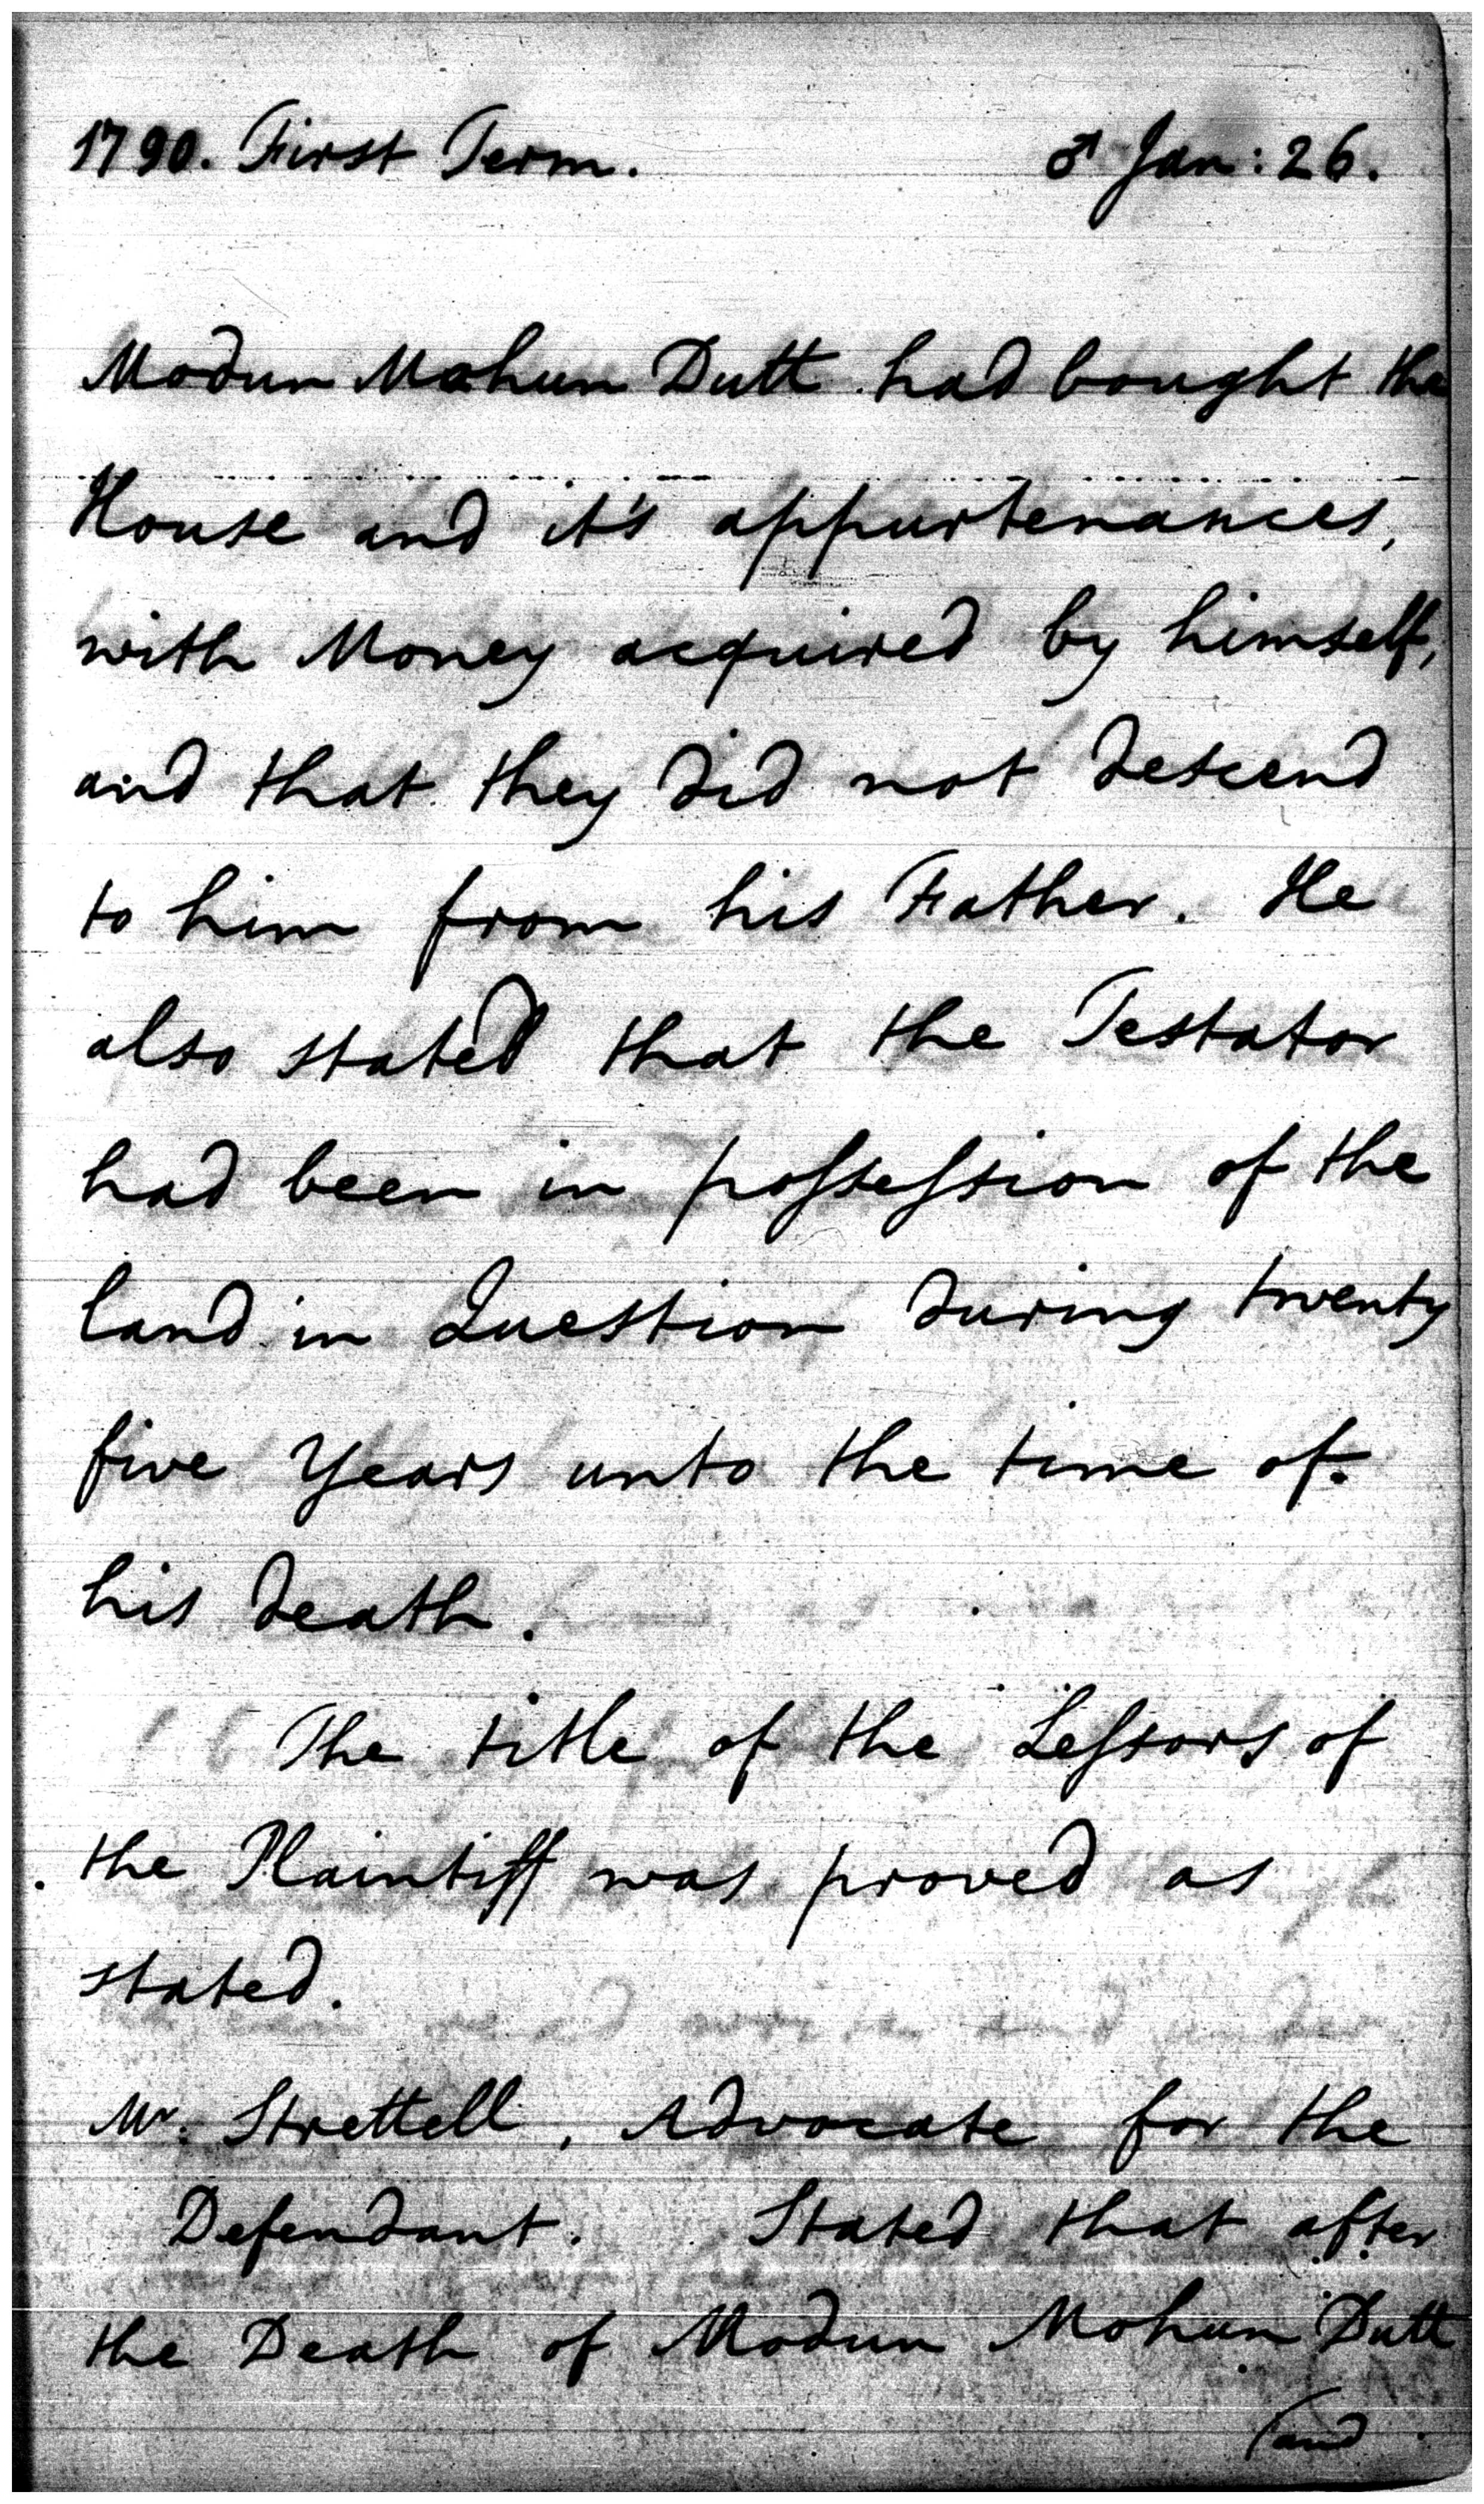 1790. First Term. ♂ Jan: 26.
Modun Mohun Dutt had bought the
House and it's appurtenances,
with Money acquired by himself,
and that they did not descend
to him from his Father. He
also stated that the Testator
had been in possession of the
land in Question during twenty
five Years unto the time of
his death.
The title of the Lessors of
the Plaintiff was proved as
stated.
Mr. Strettell, Advocate for the
Defendant. Stated that after
the Death of Modun Mohun Dutt
(and